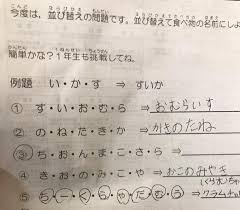 今度は、並び替えの問題です。並び替えて食べ物の名前にしよ
かんたん いちねんせい ちょうせん
簡単かな？1年生も挑戦してね。
例題 い・か・す ⇒ すいか
① す・い・お・む・ら ⇒ おむらいす
② の・ね・た・き・か ⇒ かきのたね
③ ち・お・ん・ま・こ・さ・ら ⇒
④ き・お・の・み・こ・や ⇒ おこのみやき
⑤ ち・ー・く・ら・や・だ・む・う ⇒ クラム